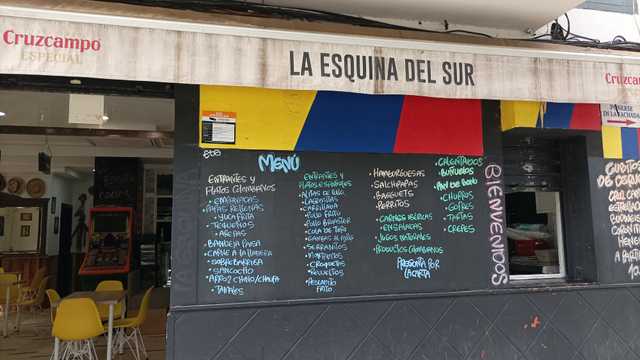 Cruzcampo
ESPECIAL
LA ESQUINA DEL SUR
Cruzcampo
MENÚ
ENTRANTES Y
PLATOS COLOMBIANOS
• EMPANADAS
• PAPAS RELLENAS
• YUCA FRITA
• TEQUEÑOS
• AREPAS
• BANDEJA PAISA
• CARNE A LA LLANERA
• SOBREBARRIGA
• SANCOCHO
• ARROZ CHINO/CHAUFA
• TAMALES
ENTRANTES Y
PLATOS ESPAÑOLES
• ALITAS DE POLLO
• LAGRIMITAS
• CARRILLADA
• POLLO FRITO
• POLLO BROASTER
• COLA DE TORO
• GAMBAS AL AJILLO
• SERRANITOS
• MONTADITOS
• CROQUETAS
• REVUELTOS
• PESCADITO
FRITO
• HAMBURGUESAS
• SALCHIPAPAS
• BAGUETS
• PERRITOS
• CARNES IBÉRICAS
• ENSALADAS
• JUGOS NATURALES
• PRODUCTOS COLOMBIANOS
PREGUNTA POR
LA CARTA
• CALENTADOS
• BUÑUELOS
• PAN DE BONO
• CHURROS
• GOFRES
• TARTAS
• CREPES
BIENVENIDOS
CUBITOS
DE
A PARTIR